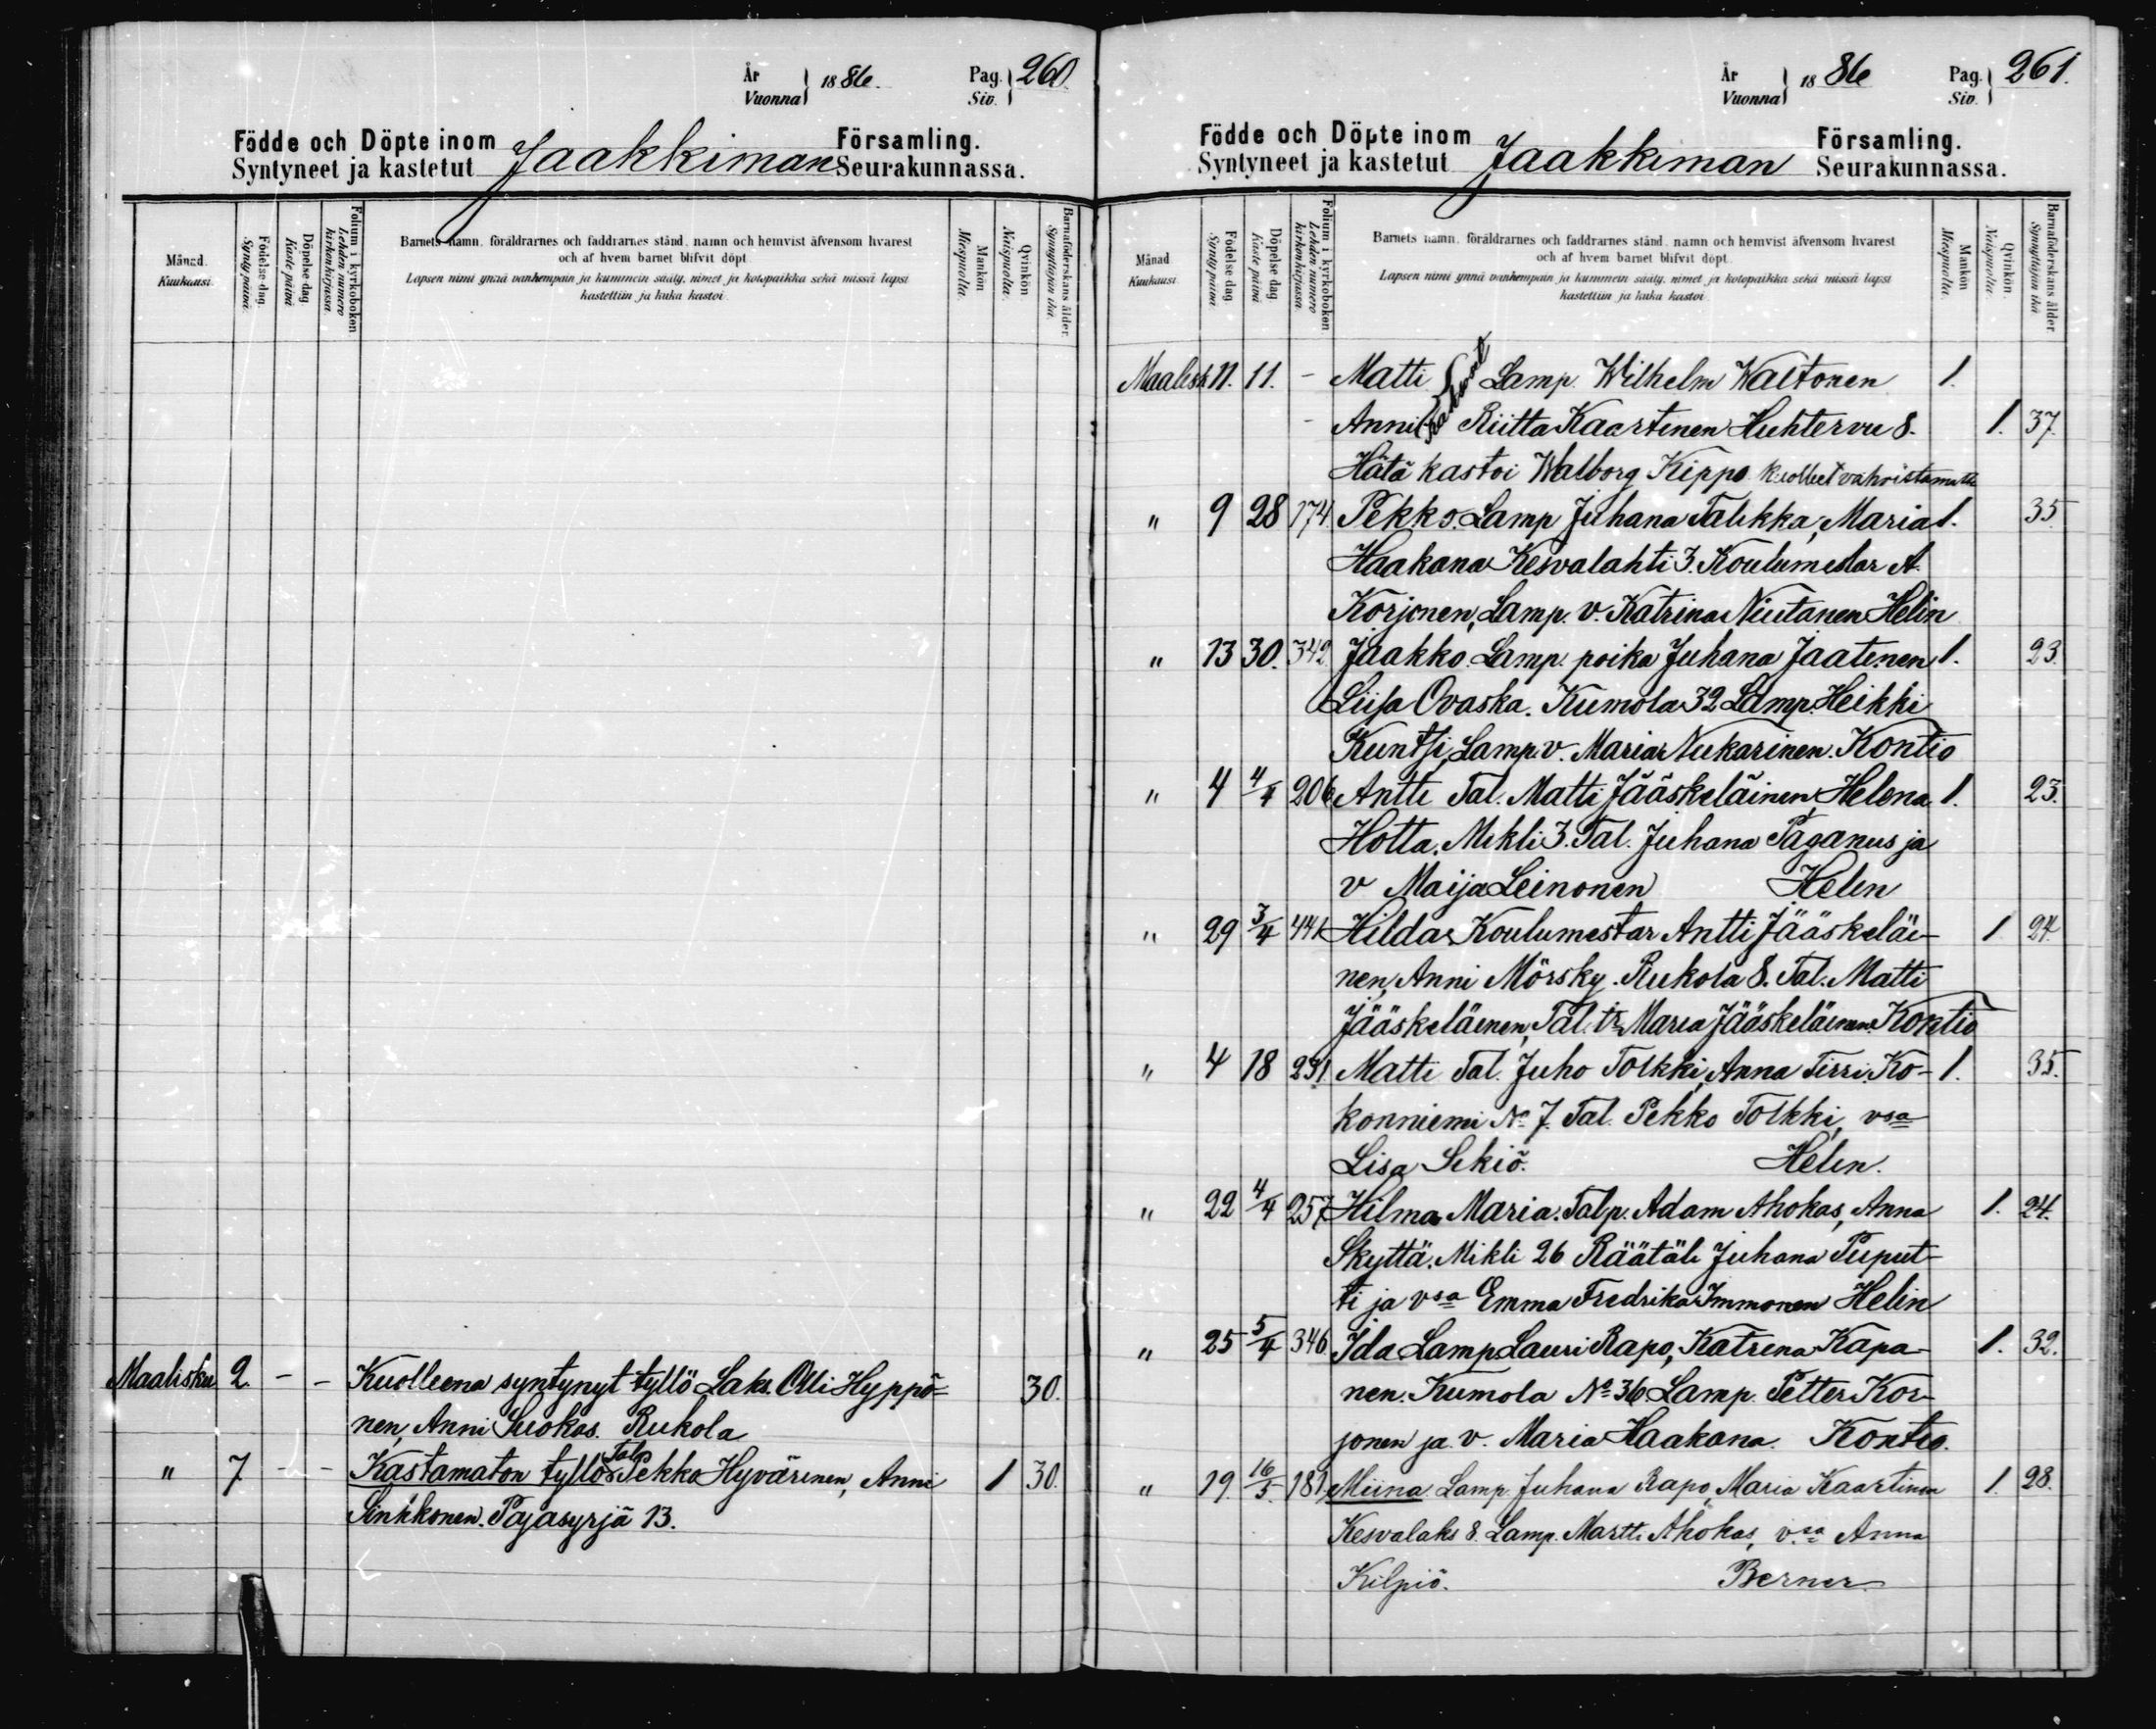 År
Vuonna
1886.
Pag.
Siv.
260.
Födde och Döpte inom
Syntyneet ja kastetut
Jaakkiman
Församling.
Seurakunnassa.
Månad.
Kuukausi.
Födelse dag.
Synty päivä.
Döpelse dag
Kaste päivä
Folium i kyrkoboken
Lehden numero kirkonkirjassa.
Barnets namn, föräldrarnes och faddrarnes stånd, namn och hemvist äfvensom hvarest
och af hvem barnet blifvit döpt
Lapsen nimi ynnä vanhempain ja kummein sääty, nimet ja kotopaikka sekä missä lapsi
kastettiin ja kuka kastoi.
Mankön
Miespuolia.
Qvinkön
Naispuolia.
Barnaföderskans ålder
Synnyttäjän ikä.
Maalisku 2. - - Kuolleena syntynyt tyllö Laks. Olli Hyppö- 30.
nen, Anni Suokas. Rukola
" 7 - - Kastamaton tyllö Tal. Pekka Hyvärinen, Anni 1 30.
Sinkkonen. Pajasyrjä 13.
År
Vuonna
1886
Pag.
Siv.
261.
Födde och Döpte inom
Syntyneet ja kastetut
Jaakkiman
Församling.
Seurakunnassa.
Månad
Kuukausi
Födelse dag
Synty päivä
Döpelse dag
Kaste päivä
Folium i kyrkoboken
Lehden numero kirkonkirjassa.
Barnets namn, föräldrarnes och faddrarnes stånd, namn och hemvist äfvensom hvarest
och af hvem barnet blifvit döpt.
Lapsen nimi ynnä vanhempain ja kummein sääty, nimet ja kotopaikka sekä missä lapsi
kastettiin ja kuka kastoi
Mankön
Miespuolia.
Qvinkön.
Naispuolia.
Barnaföderskans ålder
Synnyttäjän ikä
Maalisk 11. 11. - Matti Lamp. Wilhelm Waltonen 1.
- Anni Riitta Kaartinen Huhtervu 8. 1. 37.
Hätä kastoi Walborg Kippo kuolleet vahvistamatta
" 9 28 174 Pekko. Lamp Juhana Talikka, Maria 1. 35.
Haakana Kesvalahti 3. Koulumestar A.
Korjonen, Lamp. v. Katrina Niutanen Helin
" 13 30. 342 Jaakko. Lamp. poika Juhana Jaatinen 1. 23.
Liisa Ovaska. Kumola 32 Lamp. Heikki
Kuntsi, Lamp. v. Maria Nukarinen. Kontio
" 4 4/4 206 Antti Tal. Matti Jääskeläinen, Helena 1. 23.
Hotta. Mikli 3. Tal. Juhana Paganus ja
v Maija Leinonen Helin
" 29 3/4 441 Hilda Koulumestar Antti Jääskeläi- 1 24.
nen, Anni Mörsky. Rukola 8. Tal. Matti
Jääskeläinen, Tal. tr Maria Jääskeläinen. Kontio
" 4 18 231 Matti Tal. Juho Tolkki, Anna Tirri. Ko- 1. 35.
konniemi No 7. Tal. Pekko Tolkki, vsa
Lisa Sikiö. Helin.
" 22 4/4 257 Hilma Maria. Talp. Adam Ahokas, Anna 1. 24.
Skyttä. Mikli 26 Räätäli Juhana Puput-
ti ja vsa Emma Fredrika Immonen Helin
" 25 5/4 346 Ida Lamp Lauri Rapo, Katrina Kapa- 1. 32.
nen. Kumola No 36 Lamp. Petter Kor-
jonen ja v. Maria Haakana. Kontio.
" 19. 16/5. 181 Miina Lamp. Juhana Rapo, Maria Kaartinen 1. 28.
Kesvalaks 8. Lamp. Martti Ahokas, vsa Anna
Kilpiö. Berner